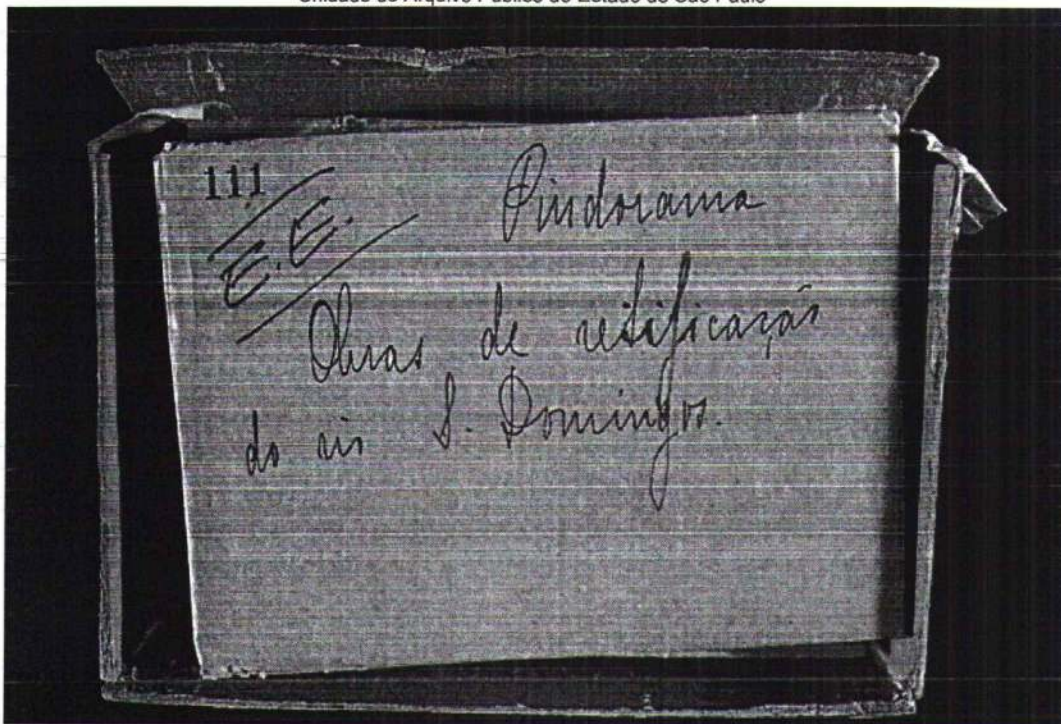 Unidade do Arquivo Público do Estado de São Paulo
111
E.E.
Pindorama
Obras de retificação
do rio S. Domingos.